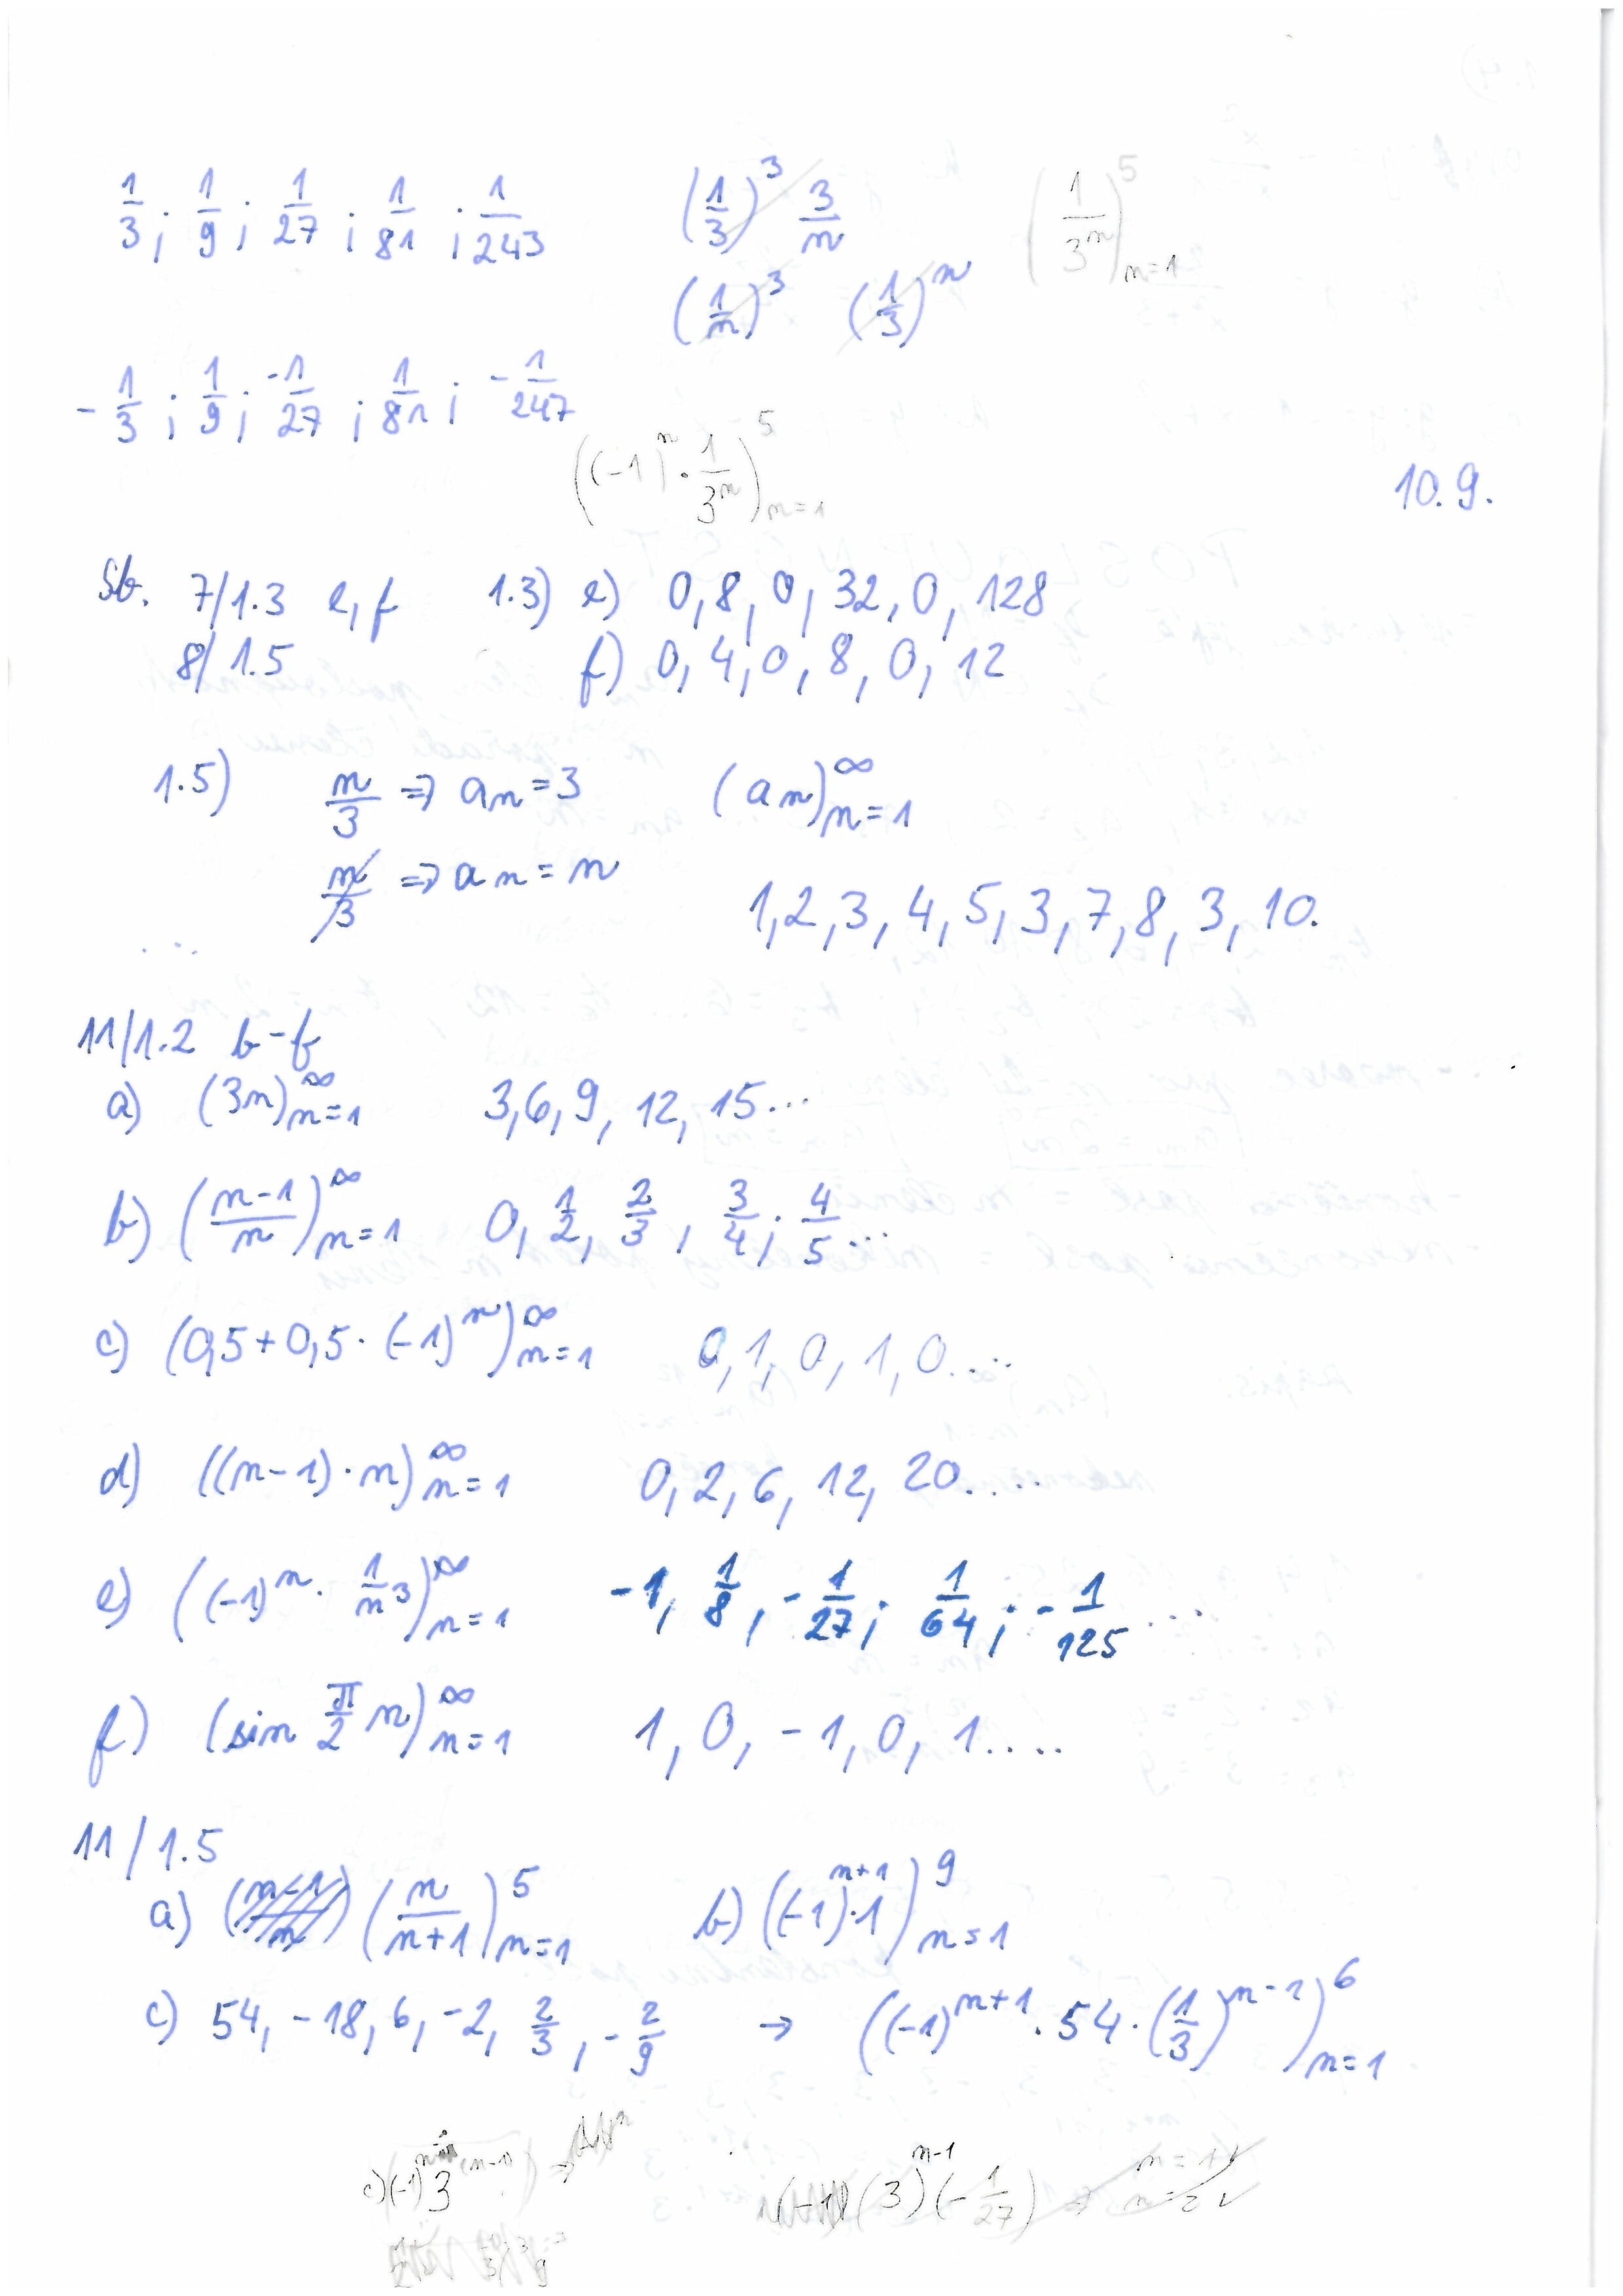 1/3 ; 1/9 ; 1/27 ; 1/81 ; 1/243   (1/3)^3   3/n   (1/3^n)^5_{n=1}
(1/n)^3   (1/3)^n
-1/3 ; 1/9 ; -1/27 ; 1/81 ; -1/247
((-1)^n · 1/3^n)^5_{n=1}
10.9.
Sb. 7/1.3 e, f   1.3) e) 0, 8, 0, 32, 0, 128
8/1.5   f) 0, 4, 0, 8, 0, 12
1.5) n/3 ⇒ an = 3   (an)^∞_{n=1}
n/3 ⇒ an = n
1, 2, 3, 4, 5, 3, 7, 8, 3, 10.
...
11/1.2 b-f
a) (3n)^∞_{n=1}   3, 6, 9, 12, 15...
b) ((n-1)/n)^∞_{n=1}   0, 1/2, 2/3, 3/4; 4/5...
c) (0,5+0,5·(-1)^n)^∞_{n=1}   0, 1, 0, 1, 0....
d) ((n-1)·n)^∞_{n=1}   0, 2, 6, 12, 20....
e) ((-1)^n · 1/n^3)^∞_{n=1}   -1, 1/8, -1/27; 1/64; -1/125 ...
f) (sin π/2 n)^∞_{n=1}   1, 0, -1, 0, 1.....
11/1.5
a) (n/(n+1))^5_{n=1}   b) ((-1)^{n+1}·1)^9_{n=1}
c) 54, -18, 6, -2, 2/3, -2/9 → ((-1)^{n+1} · 54 · (1/3)^{n-1})^6_{n=1}
c) (-1) 3   (3)^{n-1} (-1/27) ⇒ n=1 ✓
n=2 ✓